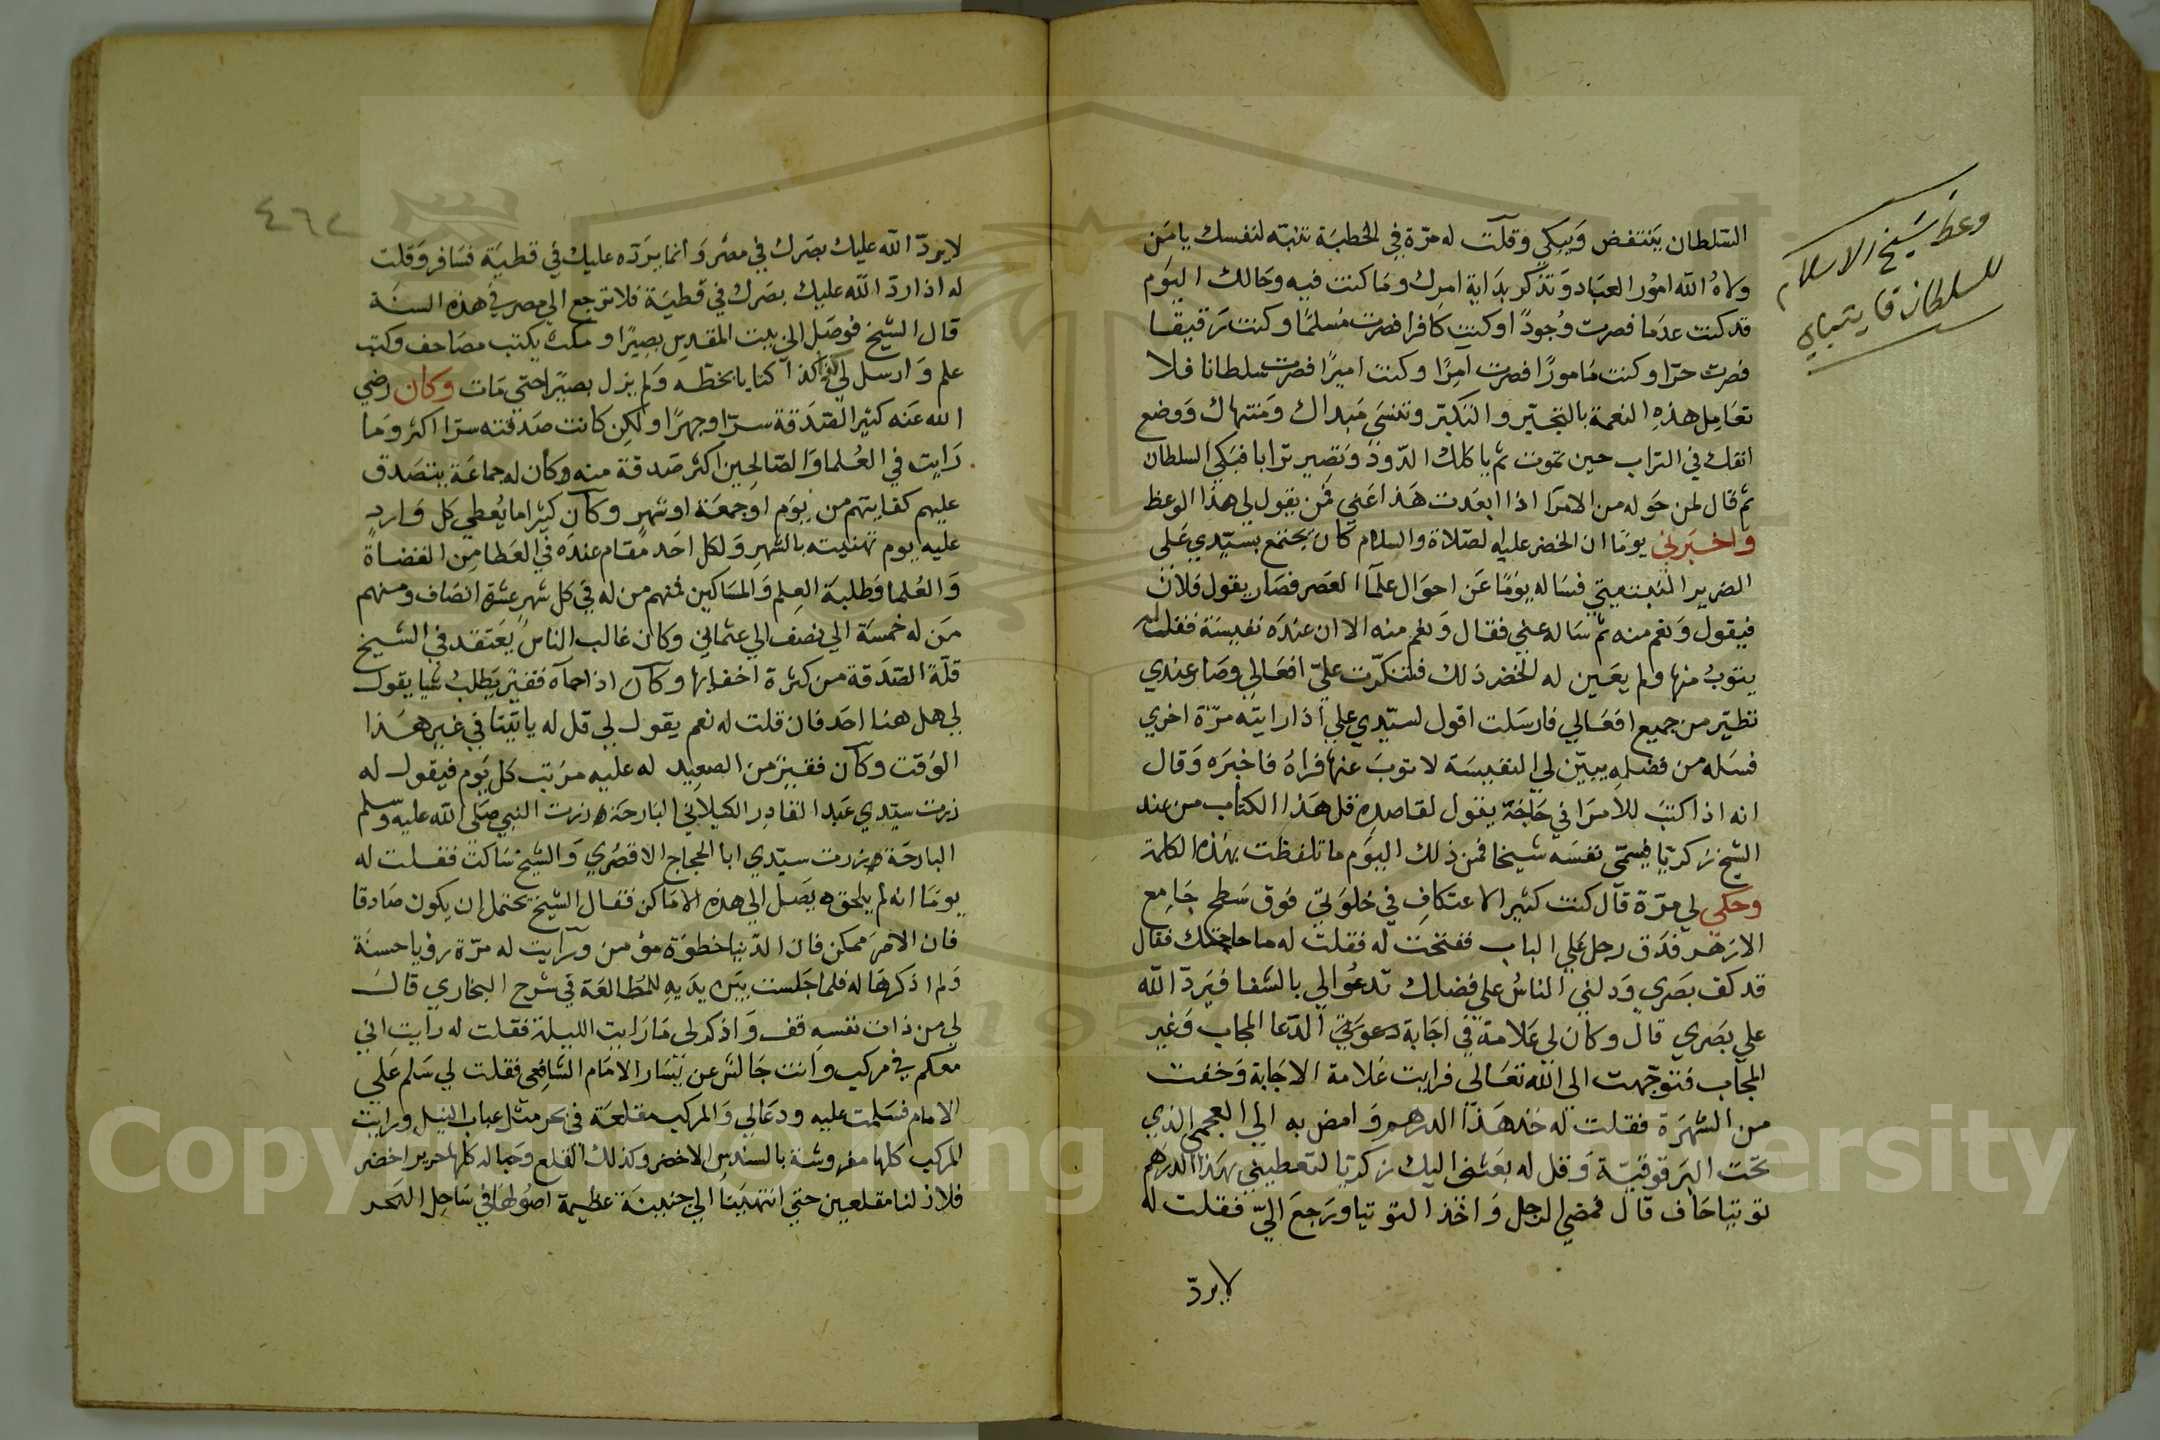 السّلطان ينتفض ويبكي وقلت له مرّة في الخطبة تنبّه لنفسك يا من
ولاه الله امور العباد وتذكر بداية امرك وما كنت فيه وحالك اليوم
قد كنت عدما فصرت وجودًا وكنت كافرا فصرت مسلمًا وكنت رقيقا
فصرت حرّا وكنت مامورًا فصرت آمرًا وكنت اميرًا فصرت سلطانا فلا
تعامل هذه النعمة بالتجبّر والتكبّر وتنسى مبداك ومنتهاك ووضع
انفك في التراب حين تموت ثم ياكلك الدّود وتصير ترابا فبكي السلطان
ثم قال لمن حوله من الامرا اذا ابعدت هذا عني فمن يقول لي هذا الوعظ
واخبرني يومًا ان الخضر عليه الصّلاة والسلام كان يجتمع بسيّدي على
الضرير النبتيتي فساله يومًا عن احوال علمآ العصر فصار يقول فلان
فيقول ونعم منه ثم ساله عني فقال ونعم منه الا ان عنده نفيسة فقلت له
يتوب منها ولم يعين له الخضر ذلك فتنكرت عليّ افعالي وصار عندي
تطيّر من جميع افعالي فارسلت اقول لسيّدي علي اذا رايته مرّة اخري
فسله من فضله يبيّن لي النفيسة لاتوب عنها فراه فاخبره وقال
انه اذا كتب للامرا في حاجة يقول لقاصده قل هذا الكتاب من عند
الشيخ زكريا فيسمّى نفسه شيخا فمن ذلك اليوم ما تلفظت بهذه الكلمة
وحكى لي مرّة قال كنت كثير الاعتكاف في خلوتي فوق سطح جامع
الازهر فدق رجل علي الباب ففتحت له فقلت له ما حاجتك فقال
قد كف بصري ودلني الناس على فضلك تدعو لي بالشفا فيردّ الله
علي بصري قال وكان لي علامة في اجابة دعوتي الدّعا المجاب وغير
المجاب فتوجّهت الى الله تعالى فرايت علامة الاجابة وخفت
من الشهرة فقلت له خذ هذا الدرهم وامض به الي العجمي الذي
تحت البرقوقيّة وقل له بعثني اليك زكريا لتعطيني بهذا الدرهم
توتيا خاف قال فمضي الرجل واخذ التوتيا ورجع اليّ فقلت له
لا يردّ
وعظ شيخ الاسلام
للسلطان قايتباي
٤٦٢
لا يردّ الله عليك بصرك في مصر وانما يردّه عليك في قطية فسافر وقلت
له اذا ردّ الله عليك بصرك في قطية فلا ترجع الي مصر في هذه السنة
قال الشيخ فوصل الي بيت المقدس بصيرًا ومكث يكتب مصاحف وكتب
علم وارسل لي كذا كذا كتابا بخطّه ولم يزل بصيرًا حتي مات وكان رضي
الله عنه كثير الصّدقة سرّا وجهرًا ولكن كانت صدقته سرّا اكثر وما
رايت في العلما والصّالحين اكثر صدقة منه وكان له جماعة يتصدق
عليهم كفايتهم من يوم او جمعة او شهر وكان كثيرا ما يعطي كل وارد
عليه يوم تهنيته بالشهر ولكل احد مقام عنده في العطا من القضاة
والعلما وطلبة العلم والمساكين فمنهم من له في كل شهر عشرة انصاف ومنهم
من له خمسة الي نصف الي عثماني وكان غالب الناس يعتقد في الشيخ
قلّة الصّدقة من كثرة اخفايها وكان اذا جآه فقير يطلب شيا يقول
لي هل هنا احد فان قلت له نعم يقول لي قل له ياتينا في غير هذا
الوقت وكان فقير من الصعيد له عليه مرتب كل يوم فيقول له
زرت سيّدي عبد القادر الكيلاني البارحة زرت النبي صلى الله عليه وسلم
البارحة زرت سيّدي ابا الحجاج الاقصري والشيخ ساكت فقلت له
يومًا انه لم يلحق يصل الي هذه الاماكن فقال الشيخ يحتمل ان يكون صادقا
فان الامر ممكن فان الدّنيا خطوة مؤمن ورايت له مرّة رؤيا حسنة
ولم اذكرها له فلما جلست بين يديه للمطالعة في شرح البخاري قال
لي من ذات نفسه قف واذكر لى ما رايت الليلة فقلت له رايت اني
معكم في مركب وانت جالس عن يسار الامام الشافعي فقلت لي سلم على
الامام فسلمت عليه ودعالي والمركب مقلعة في بحر مثل عباب النيل ورايت
المركب كلها مفروشة بالسندس الاخضر وكذلك القلع وحباله كلها حرير اخضر
فلا زلنا مقلعين حتي انتهينا الي جنينة عظيمة اصولها في ساحل البحر
Copyright © King Saud University
1957